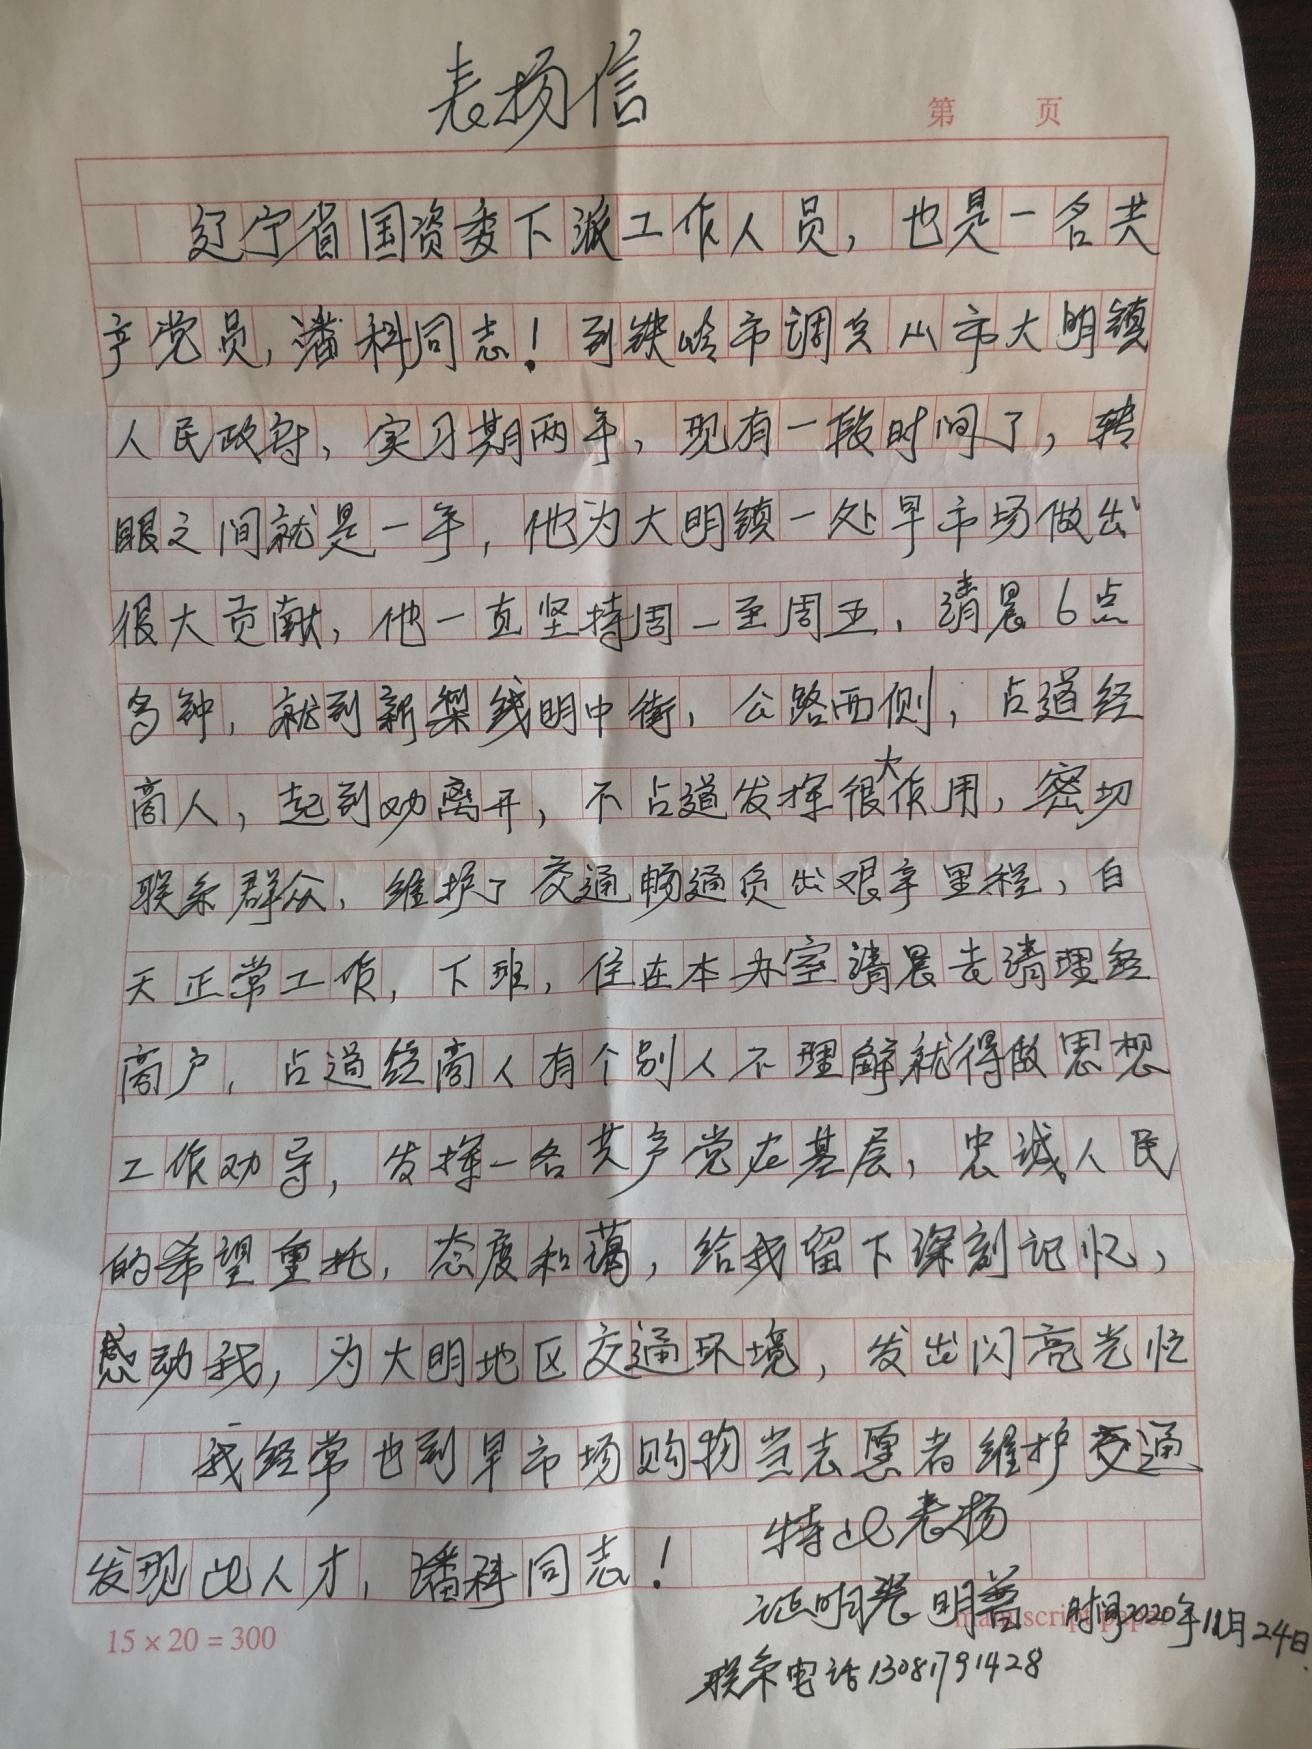 表扬信
第 页
辽宁省国资委下派工作人员,也是一名共
产党员,潘科同志!到铁岭市调兵山市大明镇
人民政府,实习期两年,现有一段时间了,转
眼之间就是一年,他为大明镇一处早市场做出
很大贡献,他一直坚持周一至周五,清晨6点
多钟,就到新梨线明中街,公路西侧,占道经
商人,起到劝离开,不占道发挥很大作用,密切
联系群众,维护了交通畅通负出艰辛里程,白
天正常工作,下班,住在本办室清晨去清理经
商户,占道经商人有个别人不理解就得做思想
工作劝导,发挥一名共产党在基层,忠诚人民
的希望重托,态度和蔼,给我留下深刻记忆,
感动我,为大明地区交通环境,发出闪亮光忙
我经常也到早市场购物当志愿者维护交通
发现此人才,潘科同志!
特此表扬
证明张明 时间2020年11月24日
联系电话13081791428
manuscript paper
15×20=300